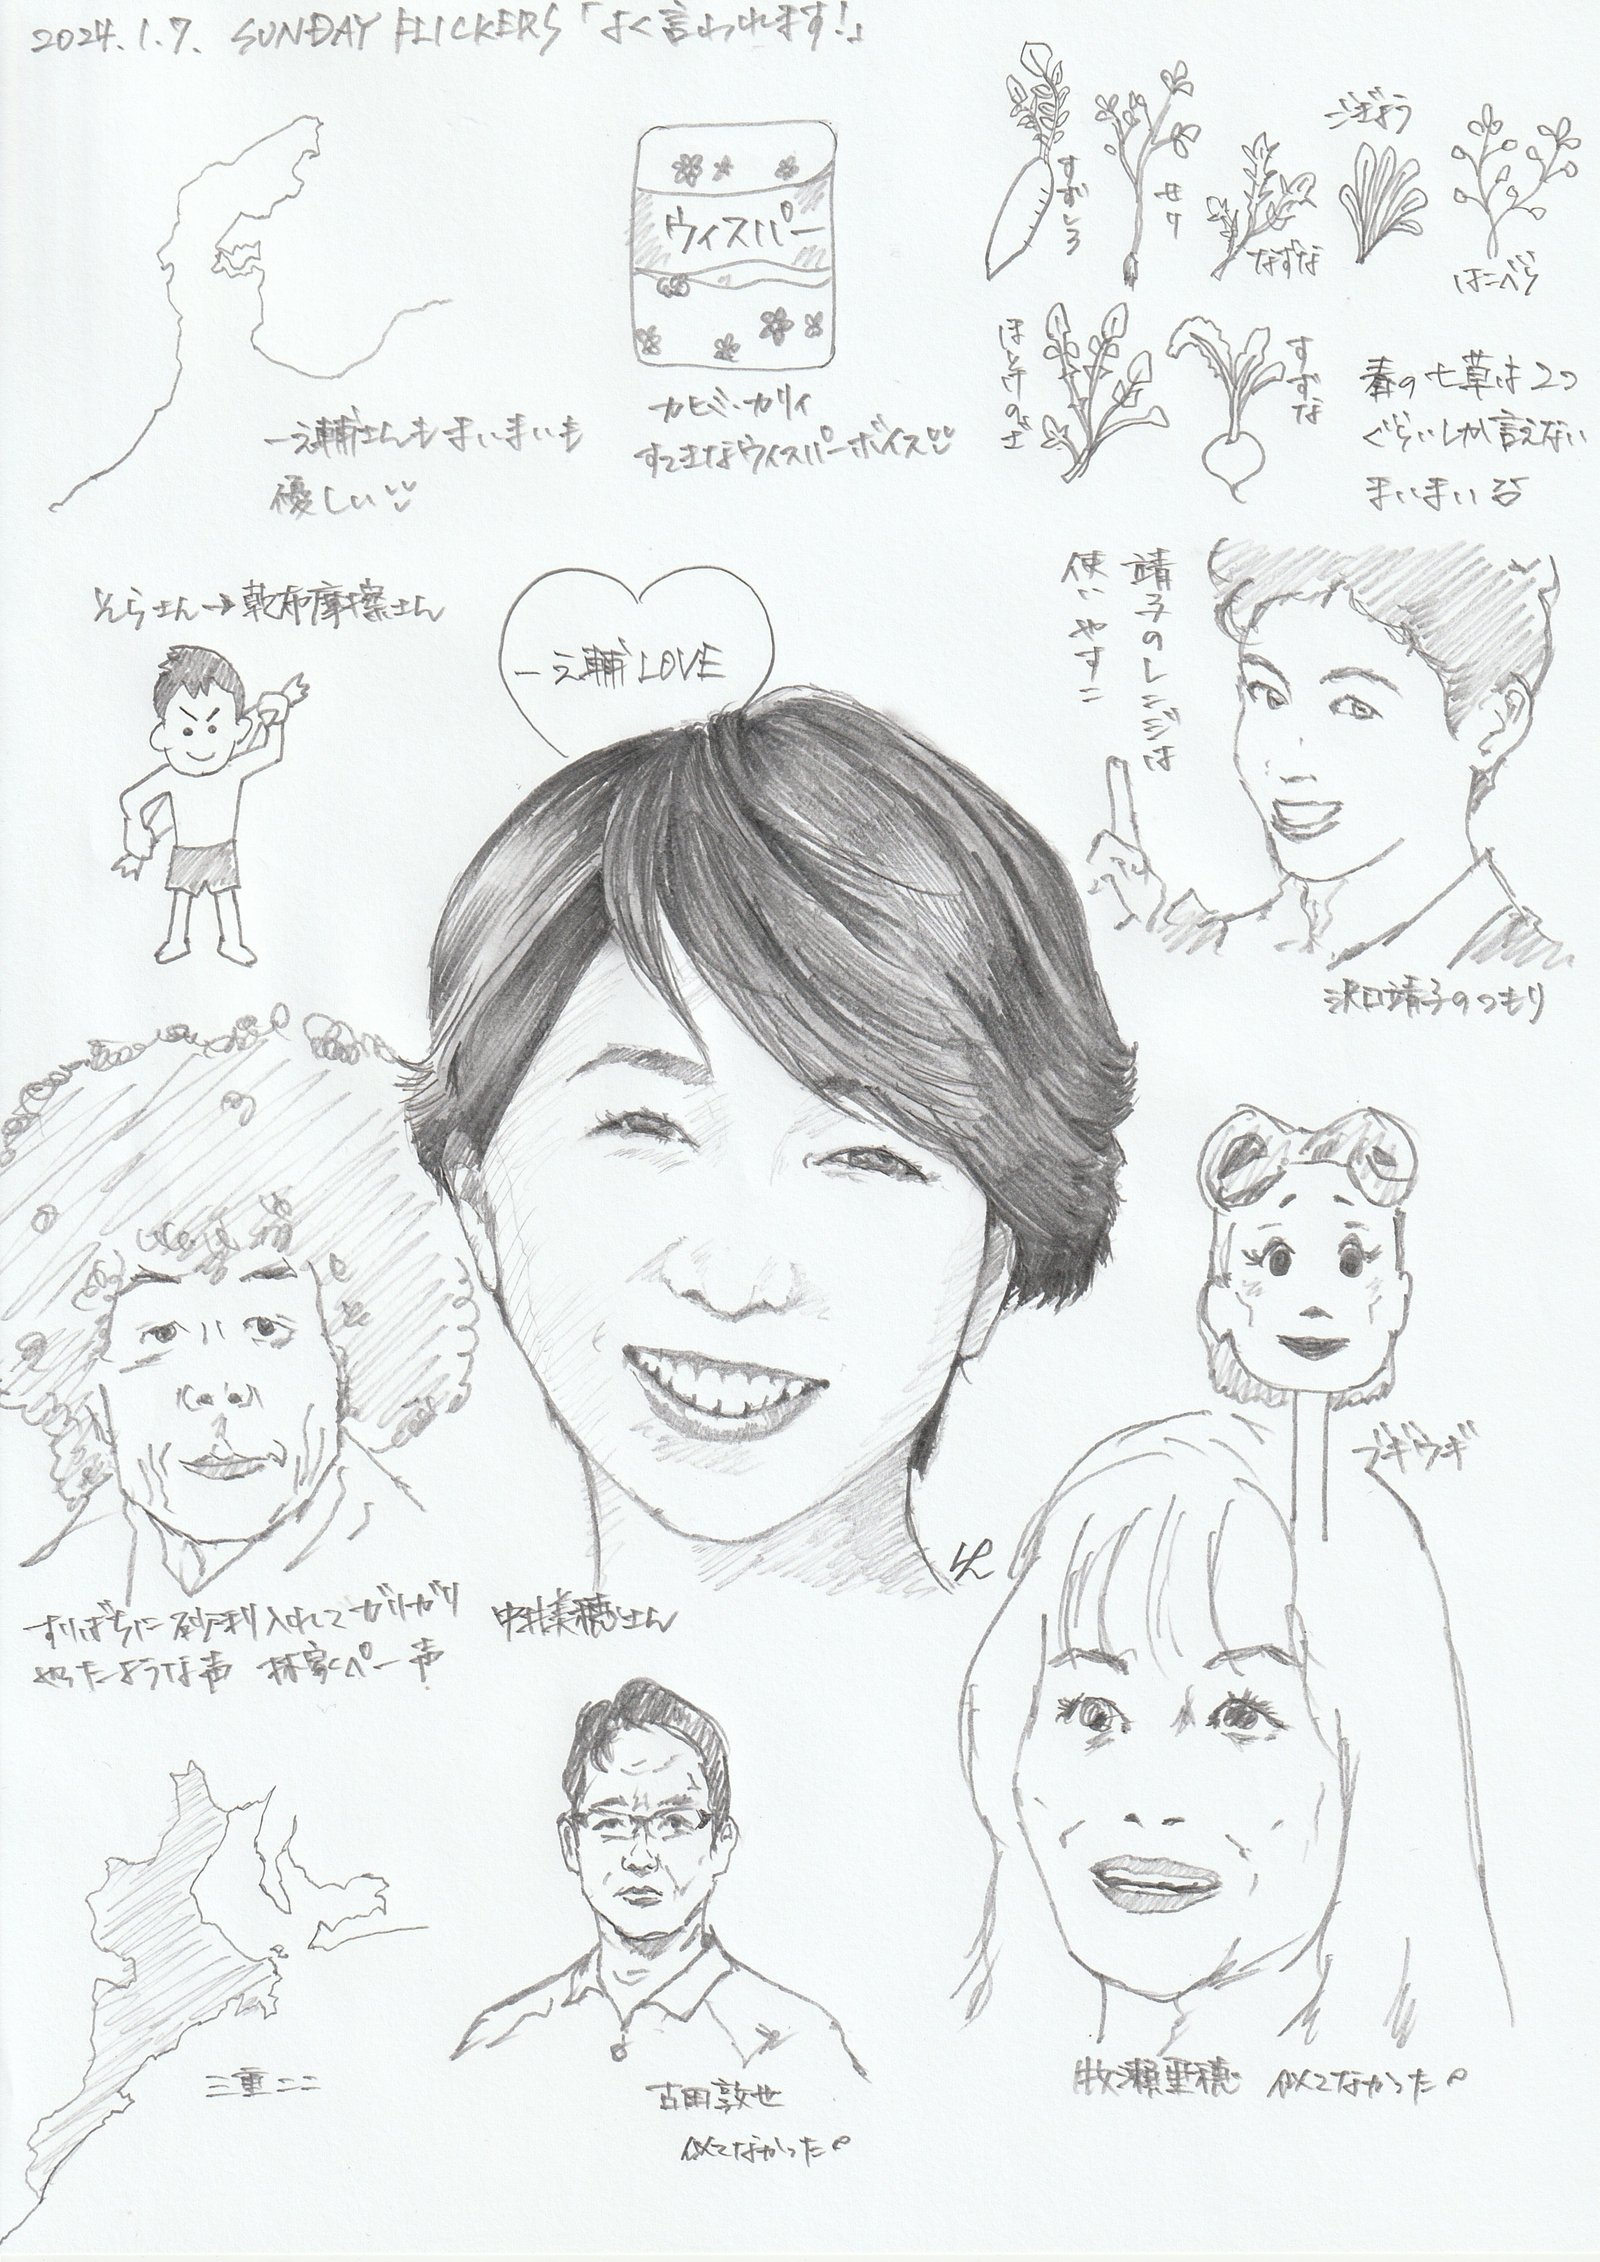 2024.1.7. SUNDAY FLICKERS「よく言われます!」
すずしろ
せり
なずな
ごぎょう
はこべら
ほとけのざ
すずな
春の七草は2つ
ぐらいしか言えない
まいまい
ウィスパー
カヒミ・カリィ
すてきなウィスパーボイス
一之輔さんもまいまいも
優しい
そらさん→乾布摩擦さん
一之輔LOVE
靖子のレンジは
使いやすこ
沢口靖子のつもり
ブギウギ
すりばちに砂利入れてガリガリ
やったような声 林家ペー声
中井美穂さん
三重ここ
古田敦也
似てなかった
牧瀬里穂 似てなかった